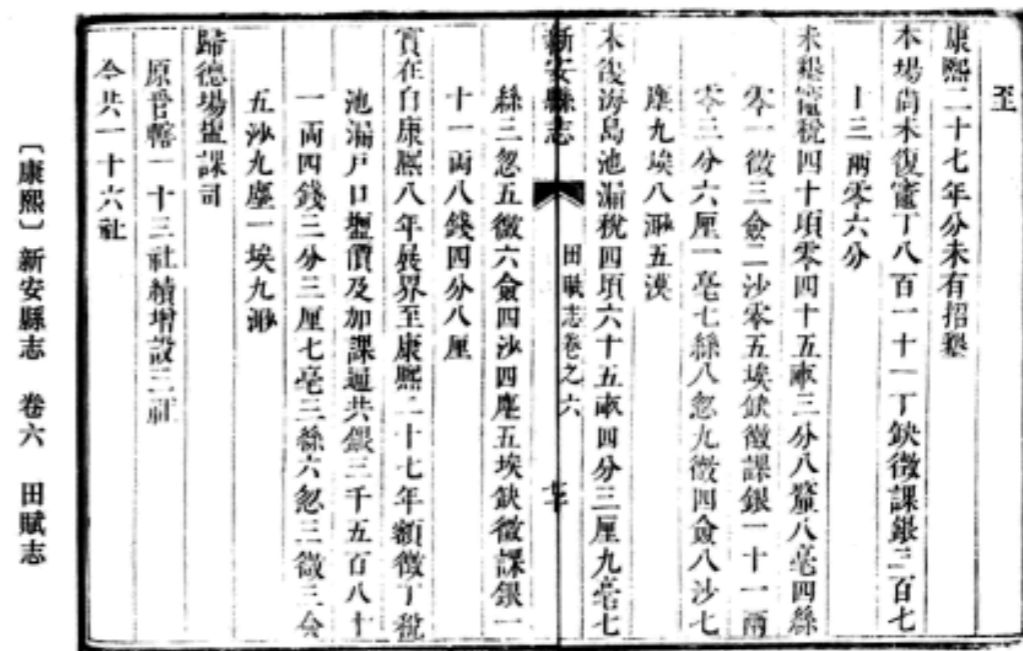 至
康熙二十七年分未有招墾
本場尚未復竈丁八百一十一丁缺徵課銀三百七
十三兩零六分
未墾竈稅四十項零四十五畝三分八釐八毫四絲
零一微三僉二沙零五埃缺徵課銀一十一兩
零三分六厘一毫七絲八忽九微四僉八沙七
塵九埃八渺五漠
未復海島池漏稅四頃六十五畝四分三厘九毫七
新安縣志 田賦志卷之六
絲三忽五微六僉四沙四塵五埃缺徵課銀一
十一兩八錢四分八厘
實在自康熙八年展界至康熙二十七年額徵丁稅
池漏戶口鹽價及加課通共銀三千五百八十
一兩四錢三分三厘七毫三絲六忽三微三僉
五沙九塵一埃九渺
歸德場鹽課司
原管轄一十三社續增設三社
今共一十六社
〔康熙〕新安縣志 卷六 田賦志